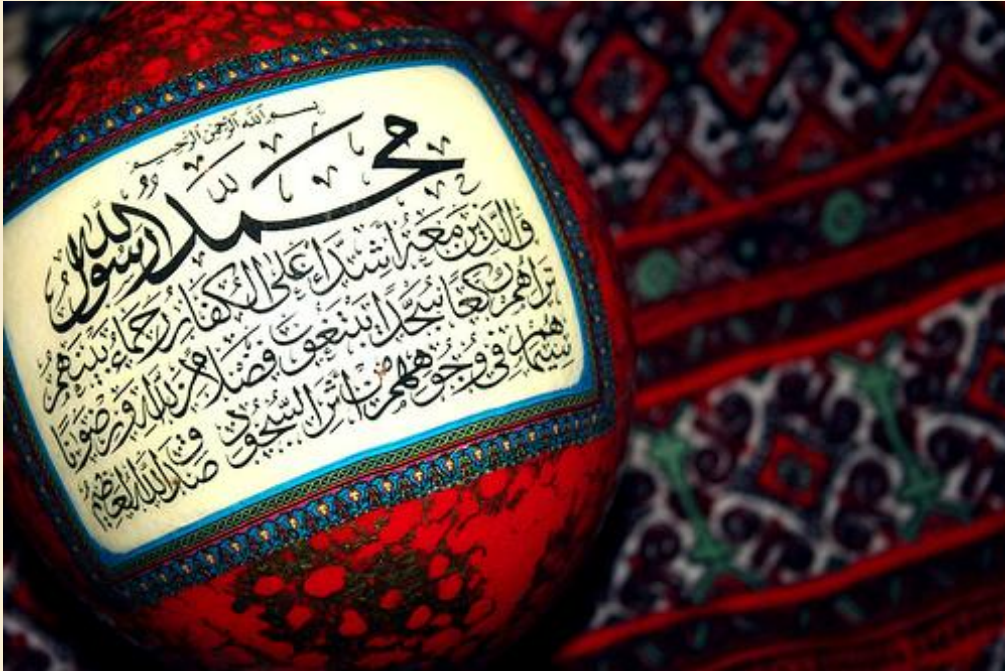 بسم الله الرحمن الرحيم
محمد رسول الله
والذين معه اشداء على الكفار رحماء بينهم
تراهم ركعا سجدا يبتغون فضلا من الله ورضوانا
سيماهم في وجوههم من اثر السجود صدق الله العظيم